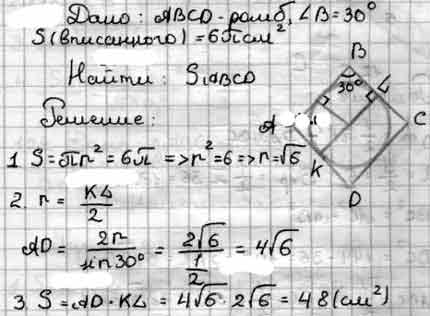 Дано: ABCD - ромб, ∠B = 30°
S (вписанного) = 6π см²
Найти: SABCD
Решение:
1 S = πr² = 6π => r² = 6 => r = √6
2. r = KL/2
AD = 2r/sin 30° = 2√6/(1/2) = 4√6
3. S = AD · KL = 4√6 · 2√6 = 48 (см²)
B
30°
L
A
C
K
D